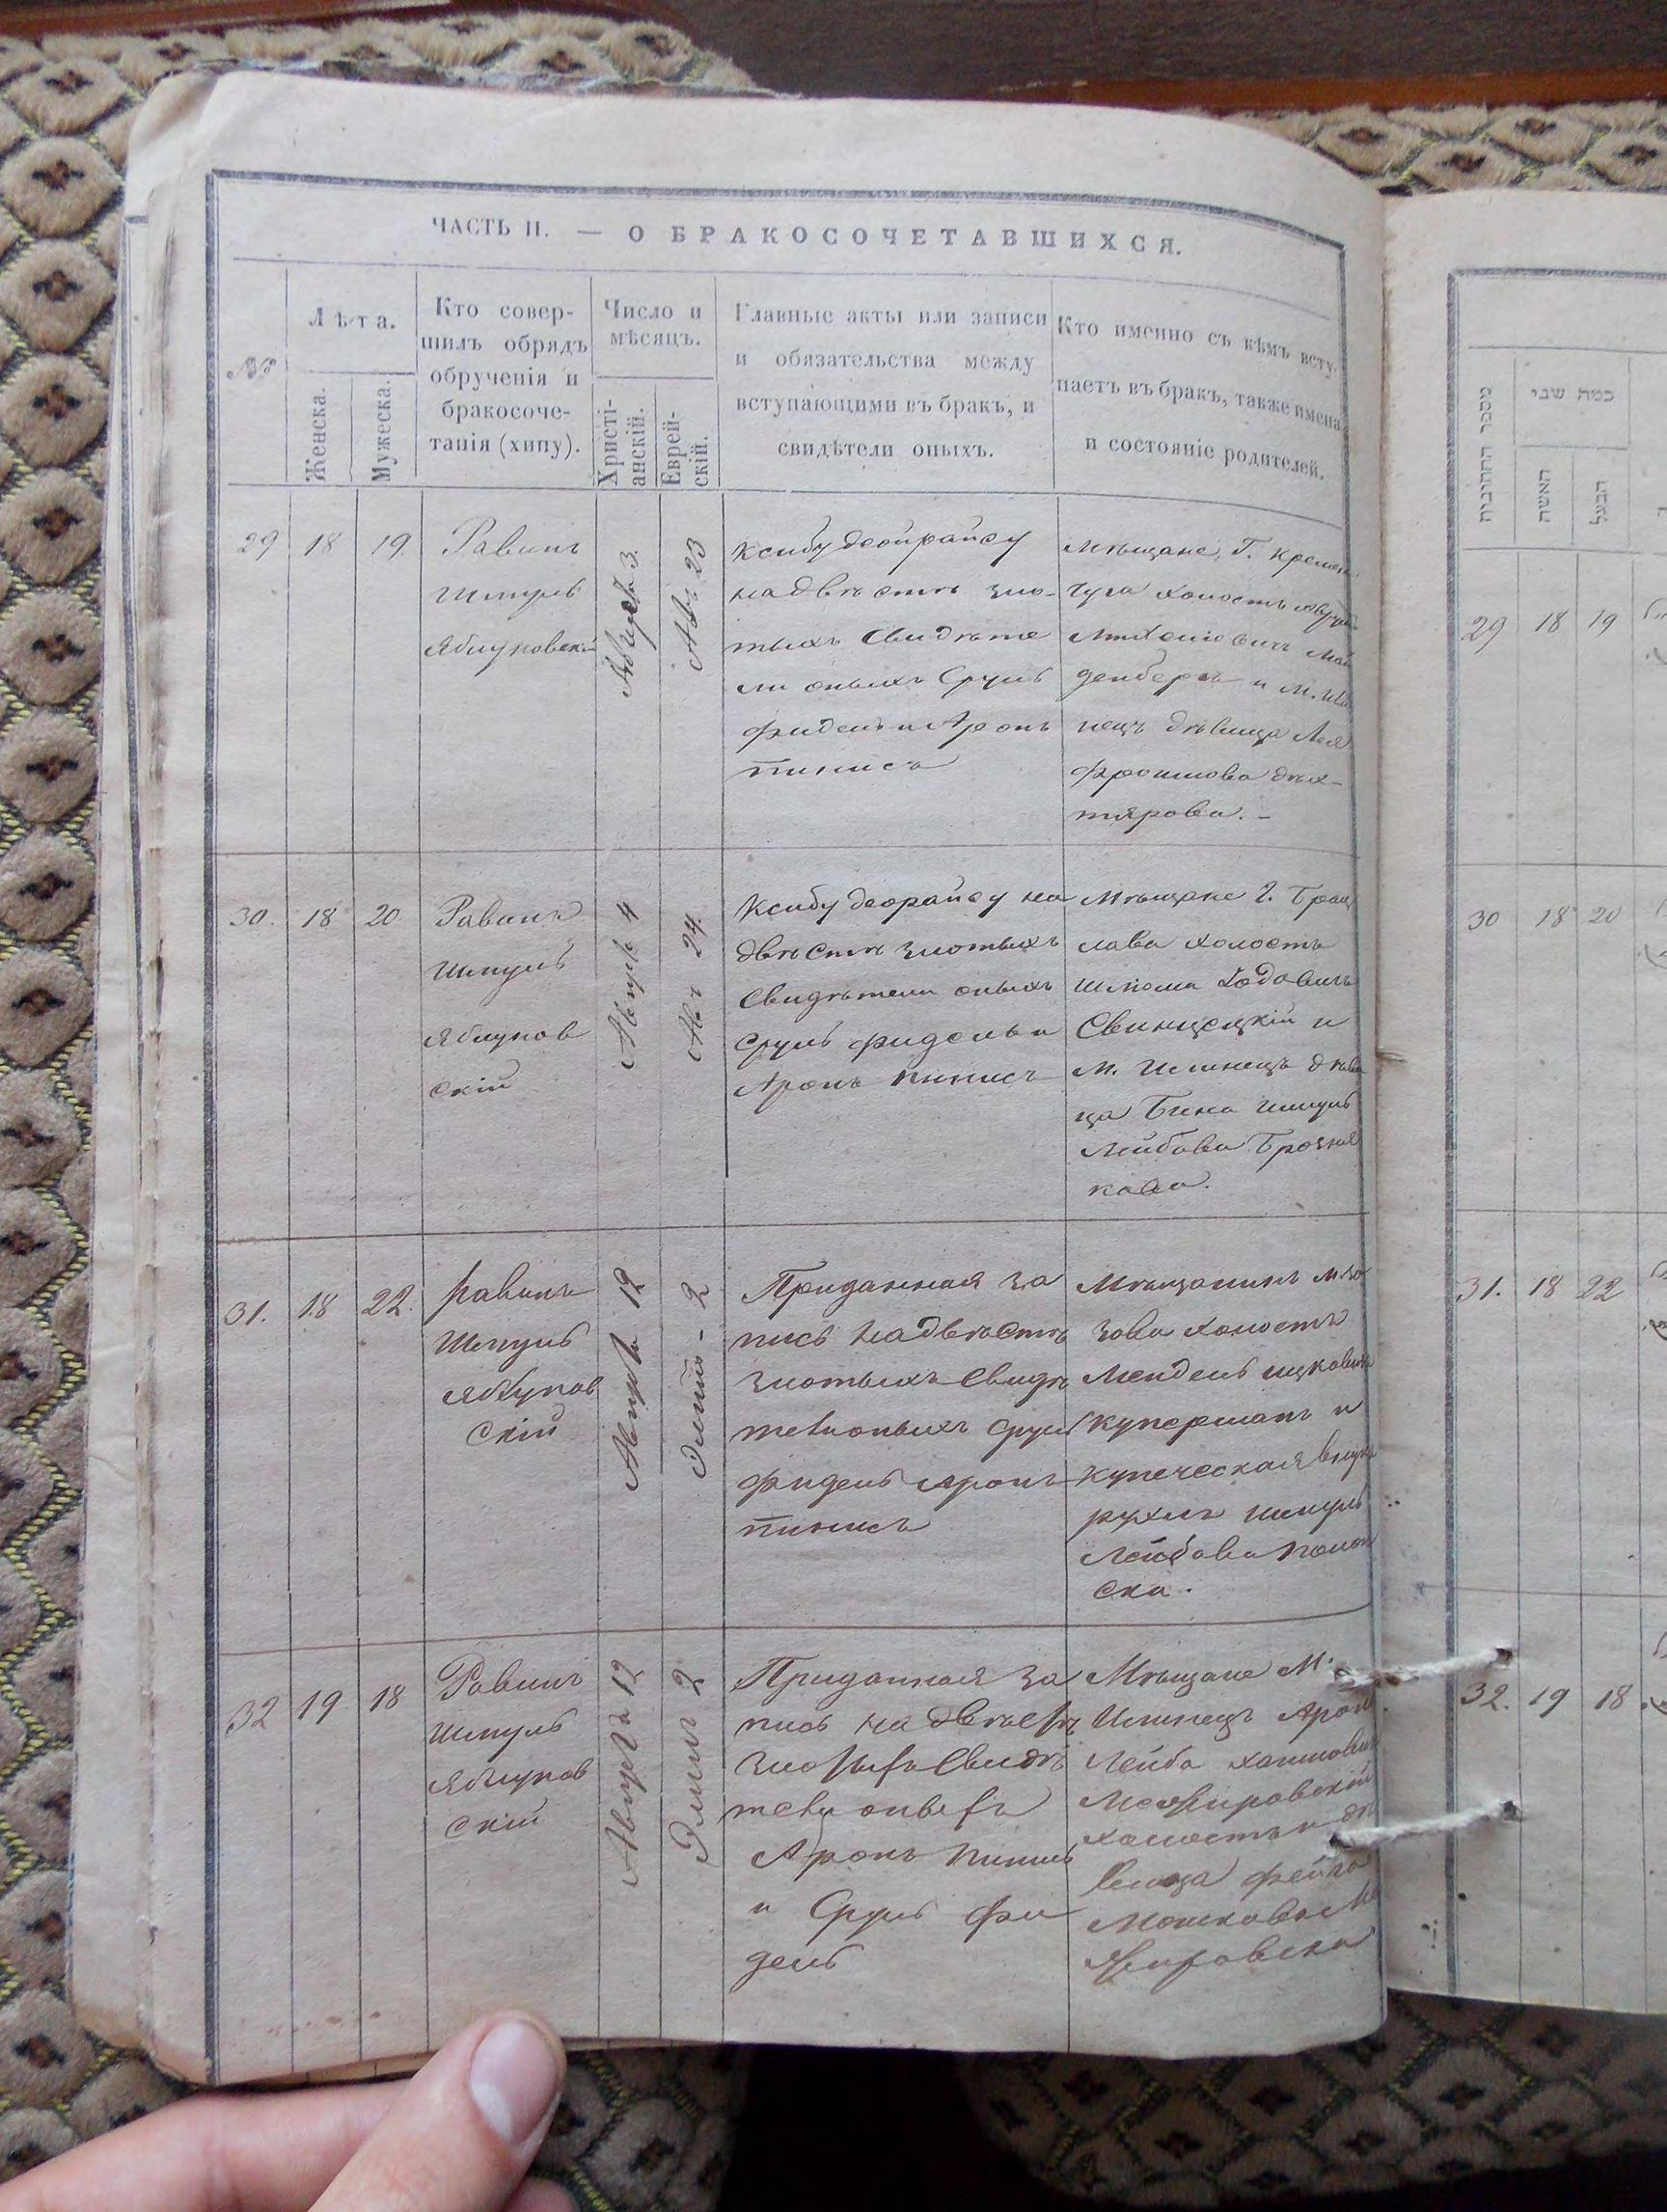 ЧАСТЬ II. — О БРАКОСОЧЕТАВШИХСЯ.
№
Лѣта.
Женска.
Мужеска.
Кто совер-
шилъ обрядъ
обрученія и
бракосоче-
танія (хипу).
Число и
мѣсяцъ.
Христі-
анскій.
Еврей-
скій.
Главные акты или записи
и обязательства между
вступающими въ бракъ, и
свидѣтели оныхъ.
Кто именно съ кѣмъ всту-
паетъ въ бракъ, также имена
и состояніе родителей.
29 18 19
Равинъ
Шмуль
Яблуновскій
Августа 3.
Авъ 23
Ксибу деойрайсу
на двѣстѣ зло-
тыхъ Свидѣте
ли оныхъ Сруль
Фидель и Аронъ
Пинисъ
Мѣщане, Г. Кремен
чуга холостъ
денбергъ и М.
нецъ дѣвица Лея
Фроимова Дех-
тярова. –
30. 18 20
Равинъ
Шмуль
Яблунов
скій
Августа 4
Авъ 24.
Ксибу деорайсу на
двѣстѣ злотыхъ
Свидѣтели оныхъ
Сруль Фидель и
Аронъ Пинисъ
Мѣщане Г. Брац
лава холостъ
Шлома
и
М. Илинецъ дѣви
ца Бина Шмуль
Лейбова
кова.
31. 18 22.
Равинъ
Шмуль
Яблунов
скій
Августа 12
- 2
Приданная за
пись на двѣстѣ
злотыхъ Свидѣ
тели оныхъ Сруль
Фидель Аронъ
Пинисъ
Мѣщанинъ
холостъ
Мендель Ицковичъ
Куперманъ и
Купеческая внука
Рухля Шмуль
Лейбова Полон
ска.
32 19 18
Равинъ
Шмуль
Яблунов
скій
Августа 12
2
Приданная за
пись на двѣстѣ
злотыхъ Свидѣ
тели оныхъ
Аронъ Пинисъ
и Сруль Фи
дель
Мѣщане М.
Илинецъ Аронъ
Лейба Хаимовичъ
Межировскій
холостъ и дѣ
вица Фейга
Мошкова Ме
жировска
מספר החתונות
כמה שני
האשה
הבעל
29 18 19
30 18 20
31. 18 22
32. 19 18